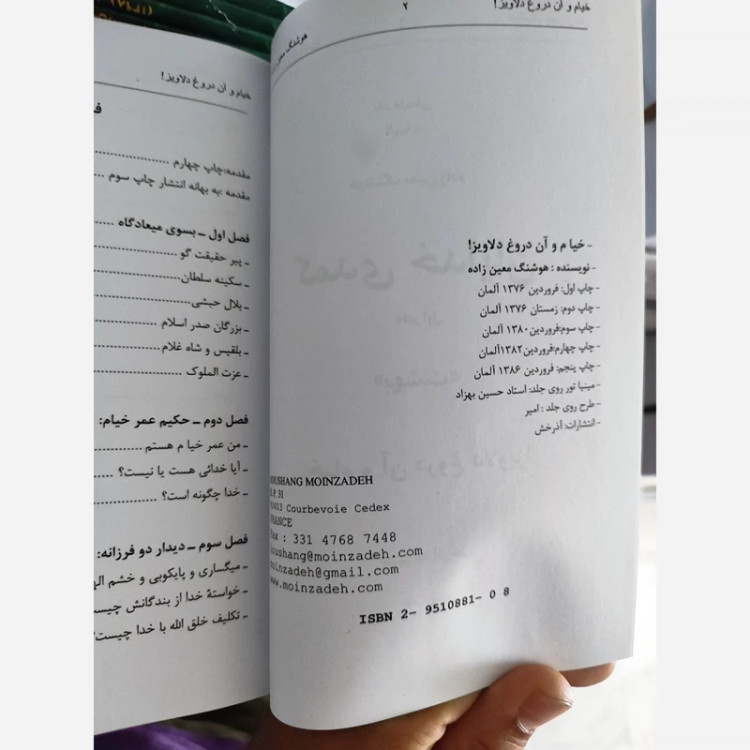 خیام و آن دروغ دلاویز!
۲
هوشنگ
- خیا م و آن دروغ دلاویز!
- نویسنده : هوشنگ معین زاده
- چاپ اول: فروردین ۱۳۷۶ آلمان
- چاپ دوم: زمستان ۱۳۷۶ آلمان
- چاپ سوم:فروردین۱۳۸۰ آلمان
- چاپ چهارم:فروردین۱۳۸۲آلمان
- چاپ پنجم: فروردین ۱۳۸۶ آلمان
- مینیا تور روی جلد: استاد حسین بهزاد
- طرح روی جلد : امیر
- انتشارات: آذرخش
HOUSHANG MOINZADEH
B.P. 31
Courbevoie Cedex
FRANCE
Fax : 331 4768 7448
houshang@moinzadeh.com
moinzadeh@gmail.com
www.moinzadeh.com
ISBN 2- 9510881- 0 8
خیام و آن دروغ دلاویز!
مقدمه:چاپ چهارم
مقدمه :به بهانه انتشار چاپ سوم
فصل اول ــ بسوی میعادگاه
ـ پیر حقیقت گو
ـ سکینه سلطان
ـ بلال حبشی
ـ بزرگان صدر اسلام
ـ بلقیس و شاه غلام
ـ عزت الملوک
فصل دوم ــ حکیم عمر خیام:
ـ من عمر خیا م هستم
ـ آیا خدائی هست یا نیست؟
ـ خدا چگونه است؟
فصل سوم ــ دیدار دو فرزانه:
ـ میگساری و پایکوبی و خشم
ـ خواستهٔ خدا از بندگانش چیست
ـ تکلیف خلق الله با خدا چیست؟